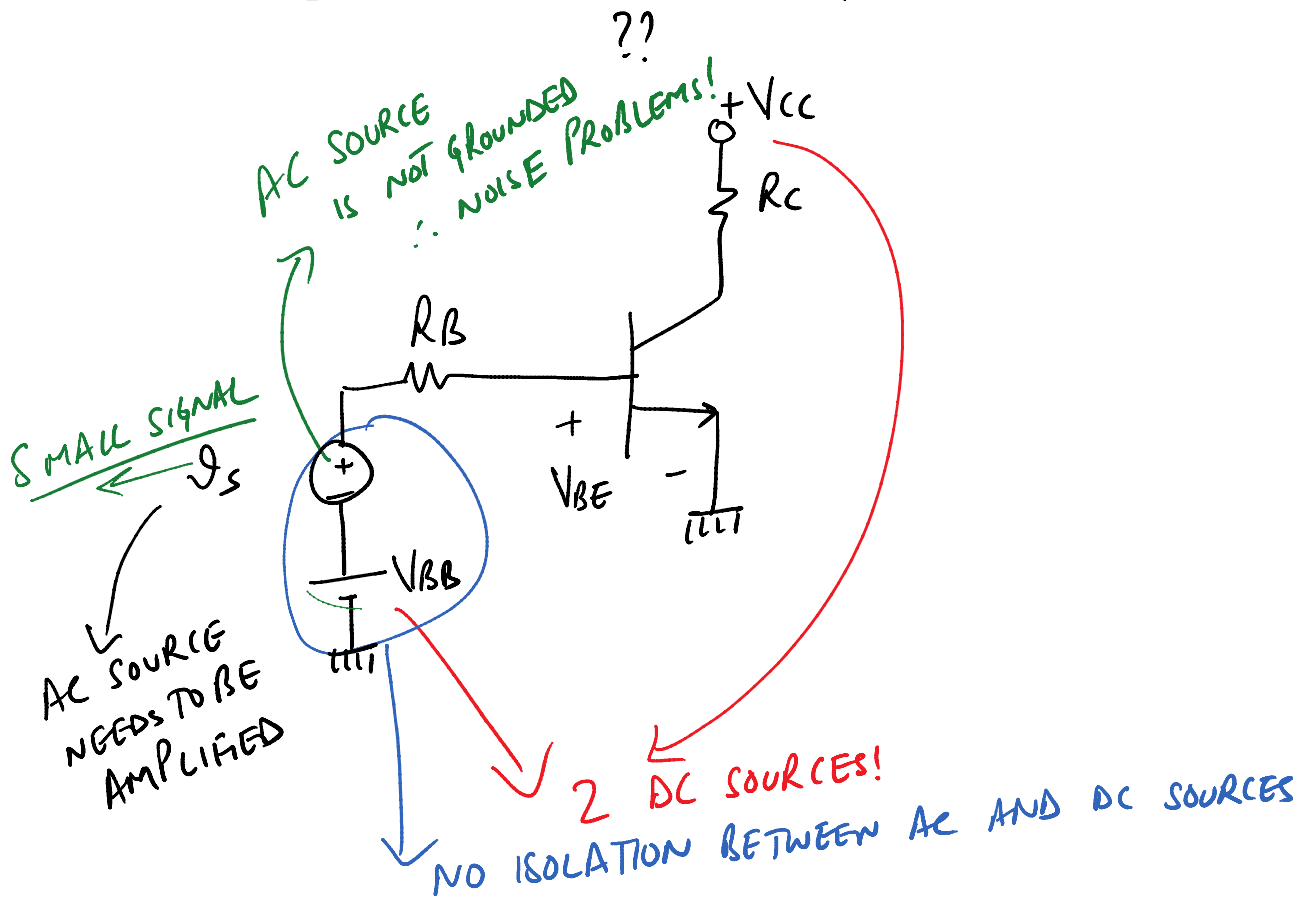 ??
AC SOURCE
IS NOT GROUNDED
∴ NOISE PROBLEMS!
+VCC
RC
RB
SMALL SIGNAL
vs
+
+
VBE
-
VBB
AC SOURCE
NEEDS TO BE
AMPLIFIED
2 DC SOURCES!
NO ISOLATION BETWEEN AC AND DC SOURCES